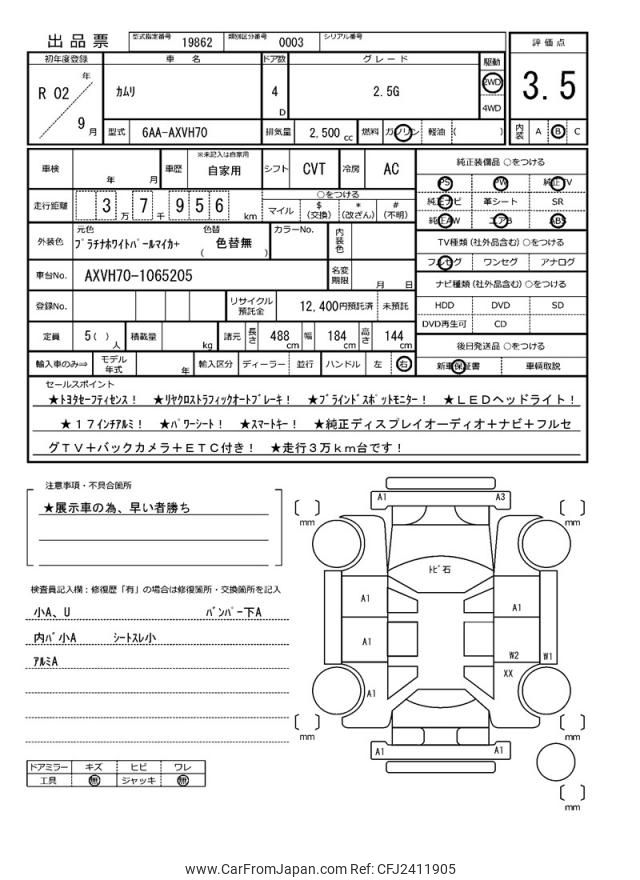 出品票 型式指定番号 19862 類別区分番号 0003 シリアル番号
評価点 3.5
内装 A B C
初年度登録 車名 ドア数 グレード 駆動
R 02 年 9 月 カムリ 4 D 2.5G 2WD 4WD
型式 6AA-AXVH70 排気量 2,500 cc 燃料 ガソリン 軽油 ( )
車検 年 月 車歴 ※未記入は自家用 自家用 シフト CVT 冷房 AC
走行距離 3 万 7 千 9 5 6 km
○をつける
マイル $ (交換) * (改ざん) # (不明)
外装色 元色 プラチナホワイトパールマイカ+ 色替 ( 色替無 ) カラーNo. 内装色
車台No. AXVH70-1065205 名変期限 月 日
登録No. リサイクル預託金 12,400円預託済 未預託
定員 5 ( ) 人 積載量 kg 諸元 長さ 488 cm 幅 184 cm 高さ 144 cm
輸入車のみ⇒ モデル年式 年 輸入区分 ディーラー 並行 ハンドル 左 右
純正装備品 ○をつける
PS PW 純正TV
純正ナビ 革シート SR
純正AW エアB ABS
TV種類 (社外品含む) ○をつける
フルセグ ワンセグ アナログ
ナビ種類 (社外品含む) ○をつける
HDD DVD SD
DVD再生可 CD
後日発送品 ○をつける
新車保証書 車輌取説
セールスポイント
★トヨタセーフティセンス! ★リヤクロストラフィックオートブレーキ! ★ブラインドスポットモニター! ★LEDヘッドライト!
★17インチアルミ! ★パワーシート! ★スマートキー! ★純正ディスプレイオーディオ+ナビ+フルセ
グTV+バックカメラ+ETC付き! ★走行3万km台です!
注意事項・不具合箇所
★展示車の為、早い者勝ち
検査員記入欄:修復歴「有」の場合は修復箇所・交換箇所を記入
小A、U バンパー下A
内パ小A シートスレ小
アルミA
ドアミラー キズ ヒビ ワレ
工具 無 ジャッキ 無
A1 A3
mm mm
トビ石
A1 A1
A1 W2 W1
XX
A1
mm mm
A1 A1
mm
www.CarFromJapan.com Ref: CFJ2411905